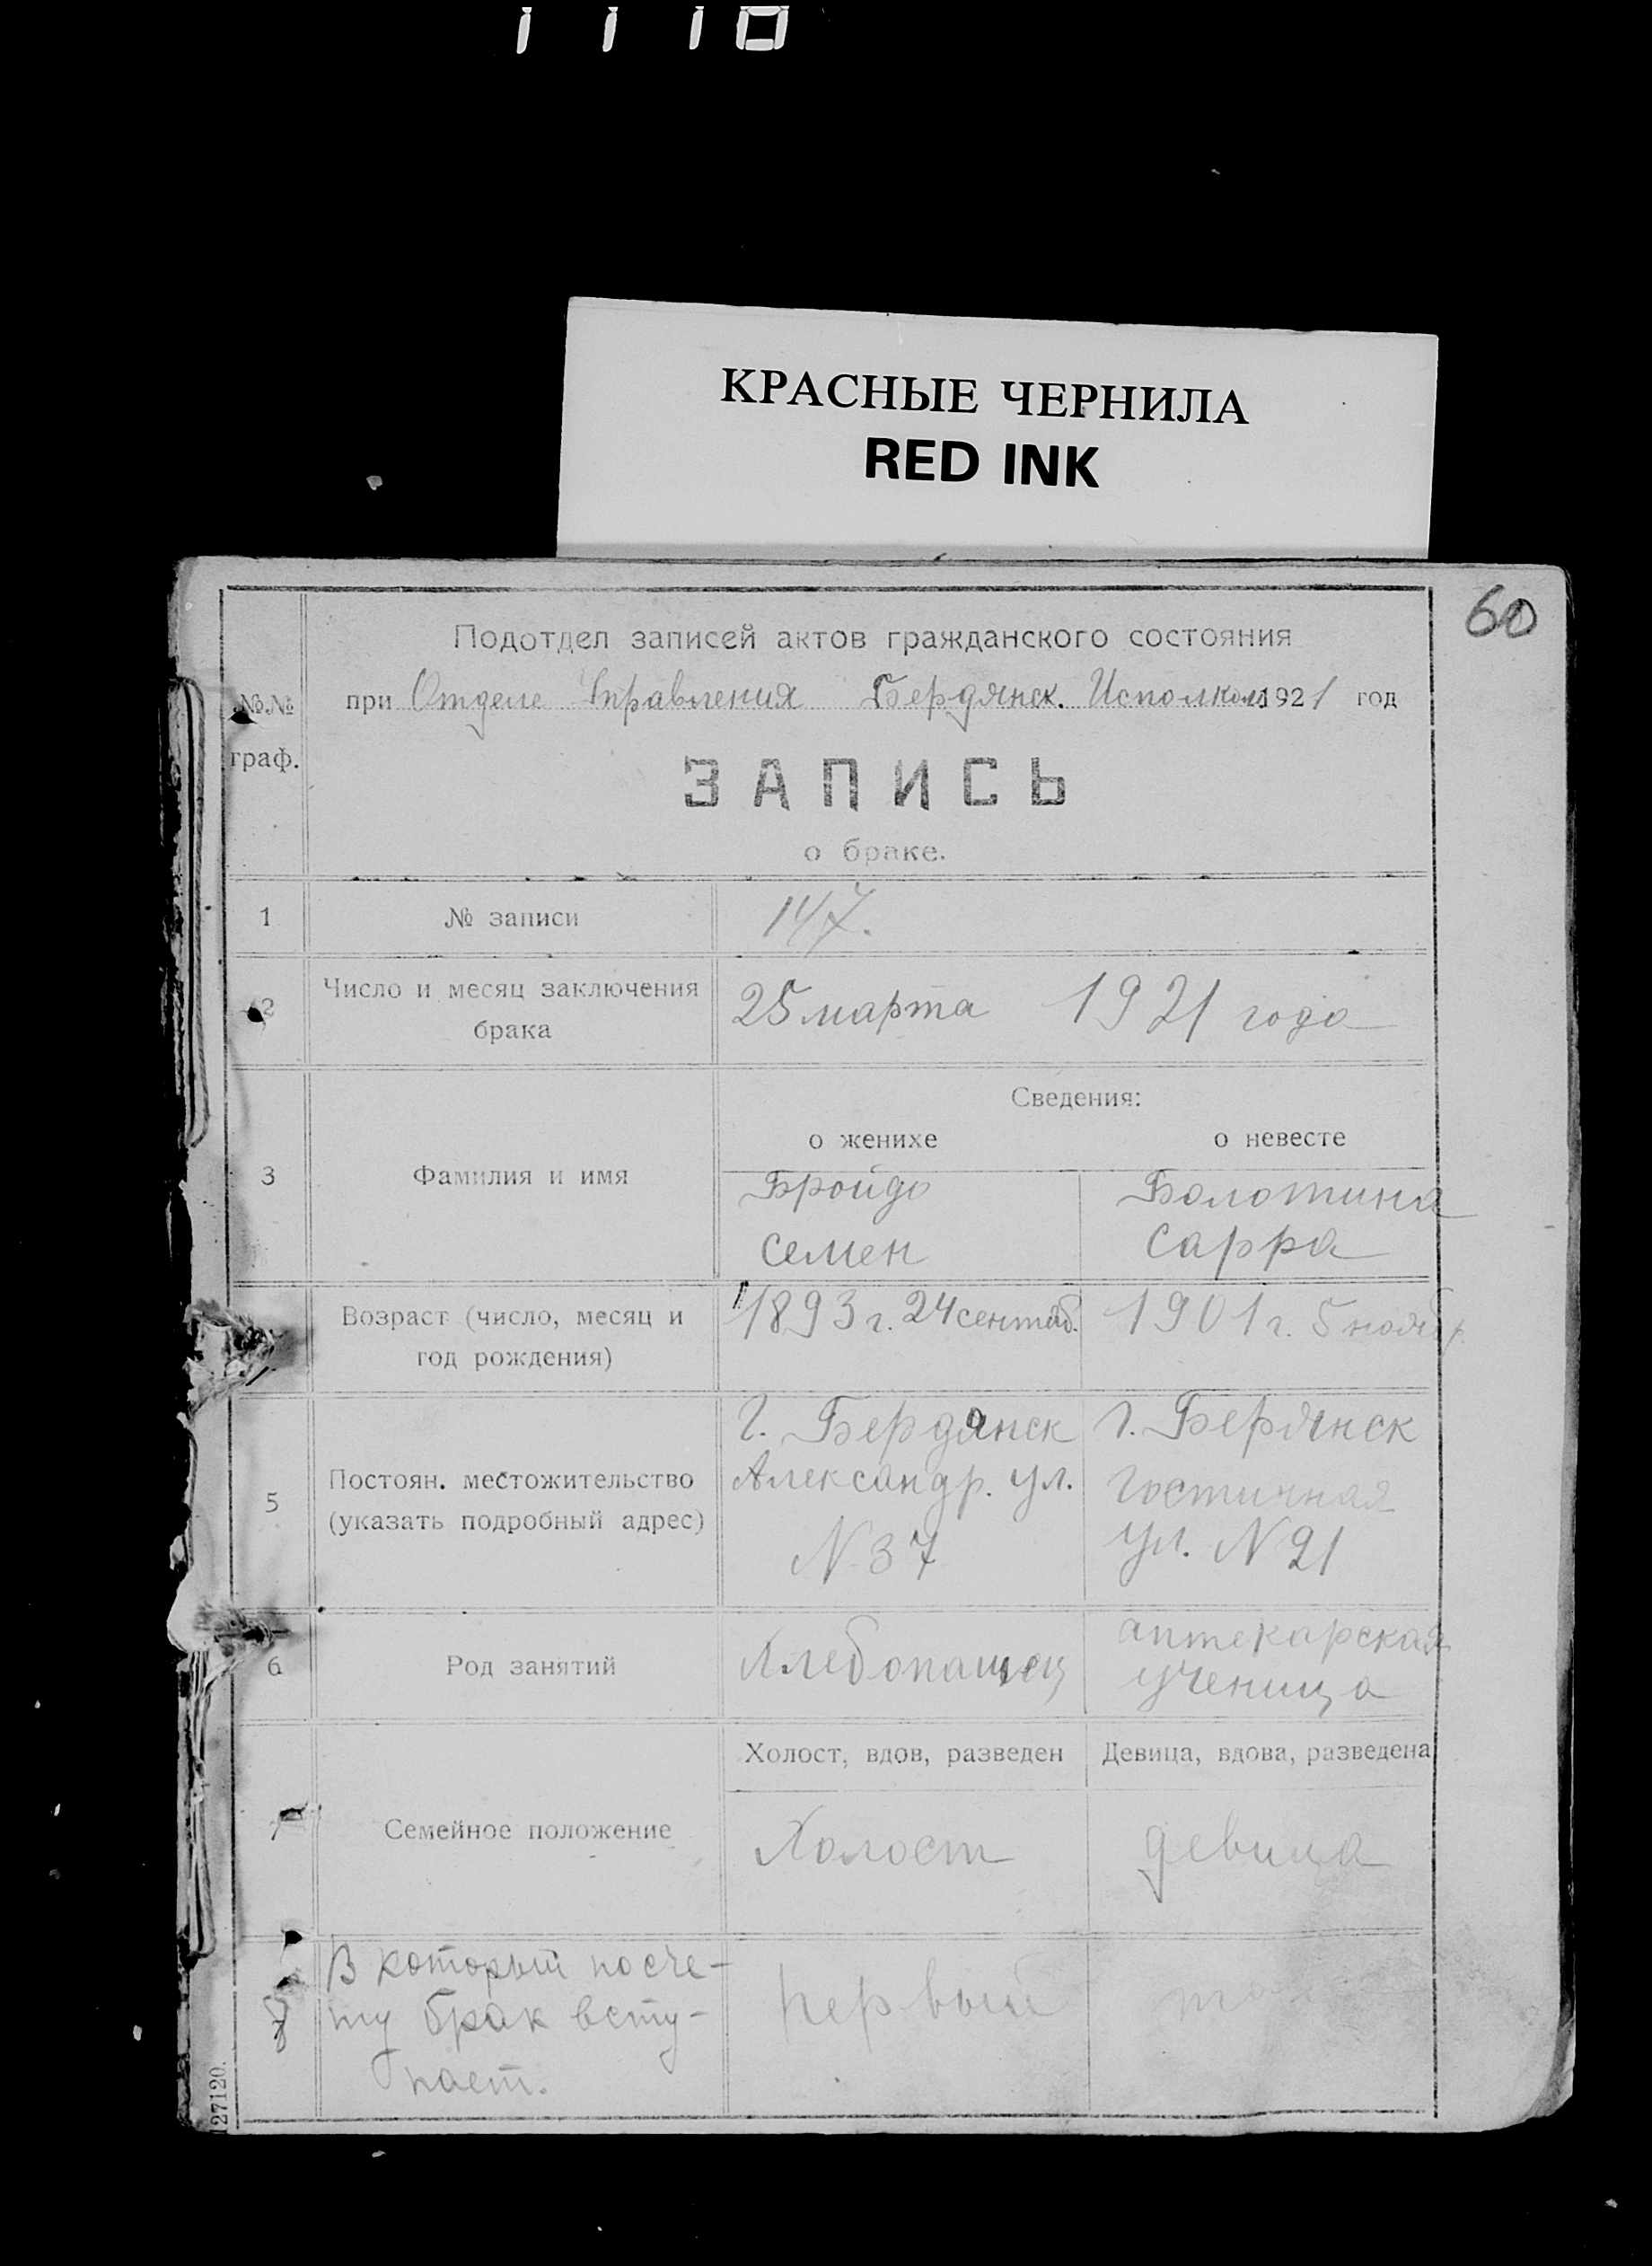 КРАСНЫЕ ЧЕРНИЛА
RED INK
60
№№ граф.
Подотдел записей актов гражданского состояния
при Отделе Управления Бердянск. Исполком 1921 год
ЗАПИСЬ
о браке.
1 № записи 147.
2 Число и месяц заключения брака 25 марта 1921 года
Сведения:
о женихе о невесте
3 Фамилия и имя
Бройдо Болотина
Семен Сарра
Возраст (число, месяц и год рождения)
1893 г. 24 сентяб. 1901 г. 5 ноябр.
5 Постоян. местожительство
(указать подробный адрес)
г. Бердянск
Александр. ул.
N 37
г. Берянск
Гостичная
ул. N 21
6 Род занятий
Хлебопашец
аптекарская
ученица
Холост, вдов, разведен Девица, вдова, разведена
7 Семейное положение
Холост девица
8 В который по сче-
ту брак всту-
пает.
первый
127120.